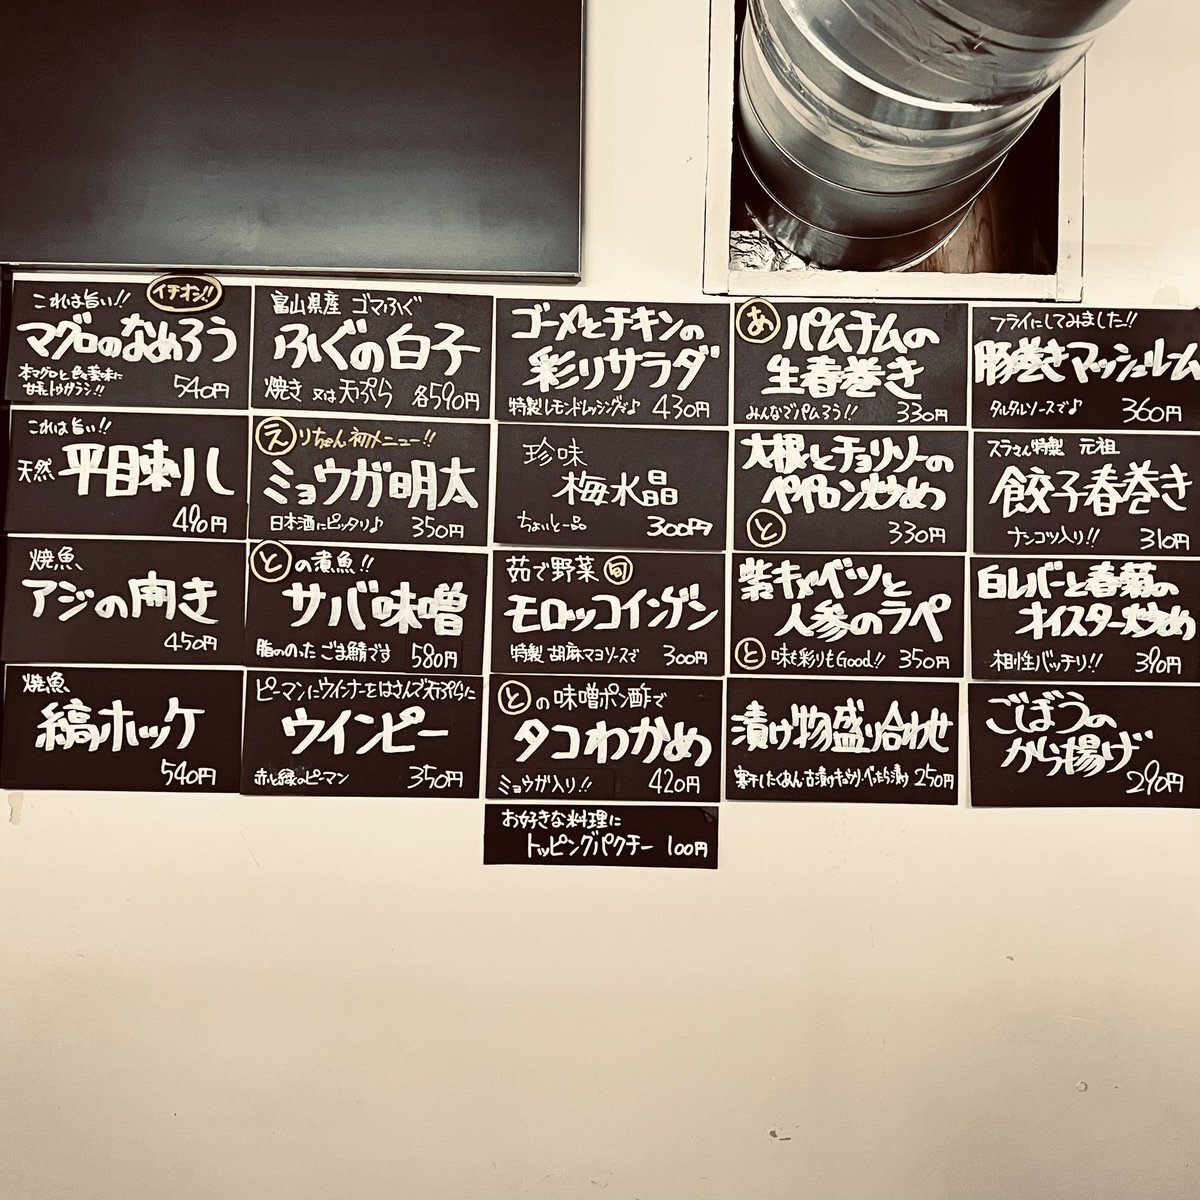 これは旨い!!
イチオシ!!
マグロのなめろう
本マグロと色々薬味に
甘長トウガラシ!!
540円
富山県産 ゴマふぐ
ふぐの白子
焼き 又は 天ぷら 各590円
ゴーメとチキンの
彩りサラダ
特製レモンドレッシングで♪ 430円
あ パムチムの
生春巻き
みんなでパムろう!! 330円
フライにしてみました!!
豚巻きマッシュルーム
タルタルソースで♪ 360円
これは旨い!!
天然 平目刺し
490円
えりちゃん初メニュー!!
ミョウガ明太
日本酒にピッタリ♪ 350円
珍味
梅水晶
ちょいと一品 300円
大根とチョリソーの
ペペロン炒め
と 330円
スラさん特製 元祖
餃子春巻き
ナンコツ入り!! 310円
焼魚
アジの開き
450円
との煮魚!!
サバ味噌
脂ののった ごま鯖です 580円
茹で野菜 旬
モロッコインゲン
特製 胡麻マヨソースで 300円
紫キャベツと
人参のラペ
と 味も彩りもGood!! 350円
白レバーと春菊の
オイスター炒め
相性バッチリ!! 390円
焼魚
縞ホッケ
540円
ピーマンにウインナーをはさんで天ぷらに
ウインピー
赤と緑のピーマン 350円
との味噌ポン酢で
タコわかめ
ミョウガ入り!! 420円
漬け物盛り合わせ
寒干したくあん・古漬けキュウリ・べったら漬け 250円
ごぼうの
から揚げ
290円
お好きな料理に
トッピングパクチー 100円